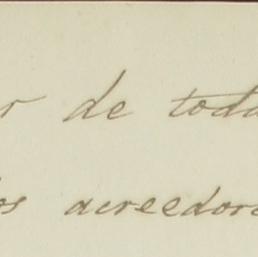 r de toda
os acreedora